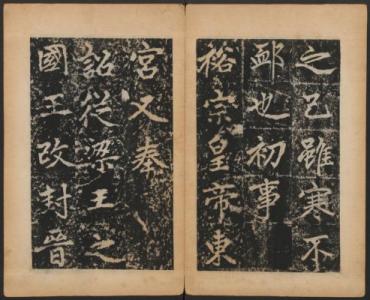 之己雖寒不
卹也初事
裕宗皇帝東
宮又奉
詔從梁王之
國王改封晉